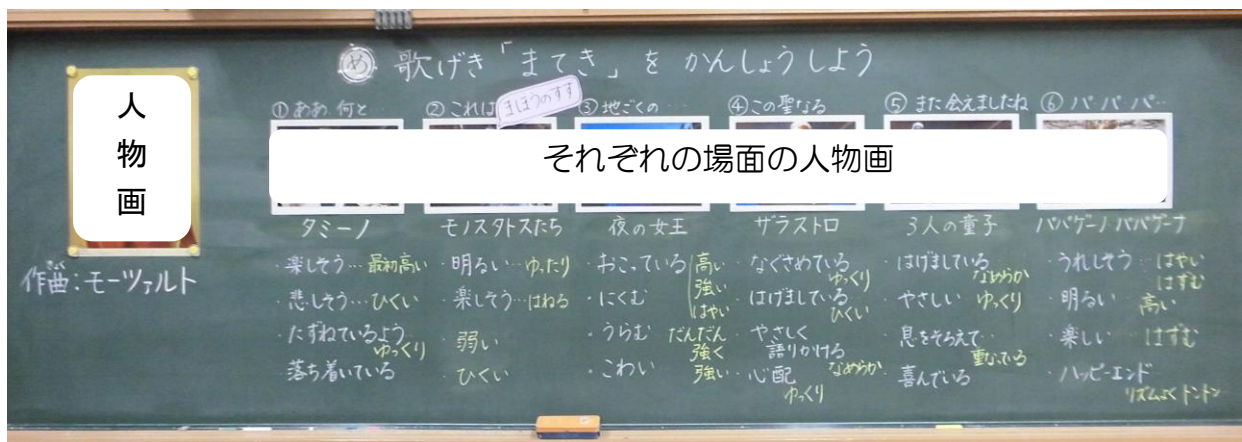 め 歌げき「まてき」を かんしょうしよう
人物画
作曲:モーツァルト
きょく
それぞれの場面の人物画
①ああ、何と…
タミーノ
・楽しそう…最初高い
・悲しそう…ひくい
・たずねているよう
ゆっくり
落ち着いている
②これは
まほうのすず
モノスタトスたち
・明るい…ゆったり
・楽しそう…はねる
・弱い
・ひくい
③地ごくの…
夜の女王
・おこっている 高い
・にくむ 強い
はやい
・うらむ だんだん
強く
・こわい 強い
④この聖なる
ザラストロ
・なぐさめている
ゆっくり
・はげましている
ひくい
・やさしく
語りかける
・心配 なめらか
ゆっくり
⑤また会えましたね
3人の童子
・はげましている
なめらか
・やさしい ゆっくり
・息をそろえて
重なっている
・喜んでいる
⑥パ・パ・パ…
パパゲーノ パパゲーナ
・うれしそう はやい
はずむ
・明るい 高い
・楽しい はずむ
・ハッピーエンド
リズムよくトントン